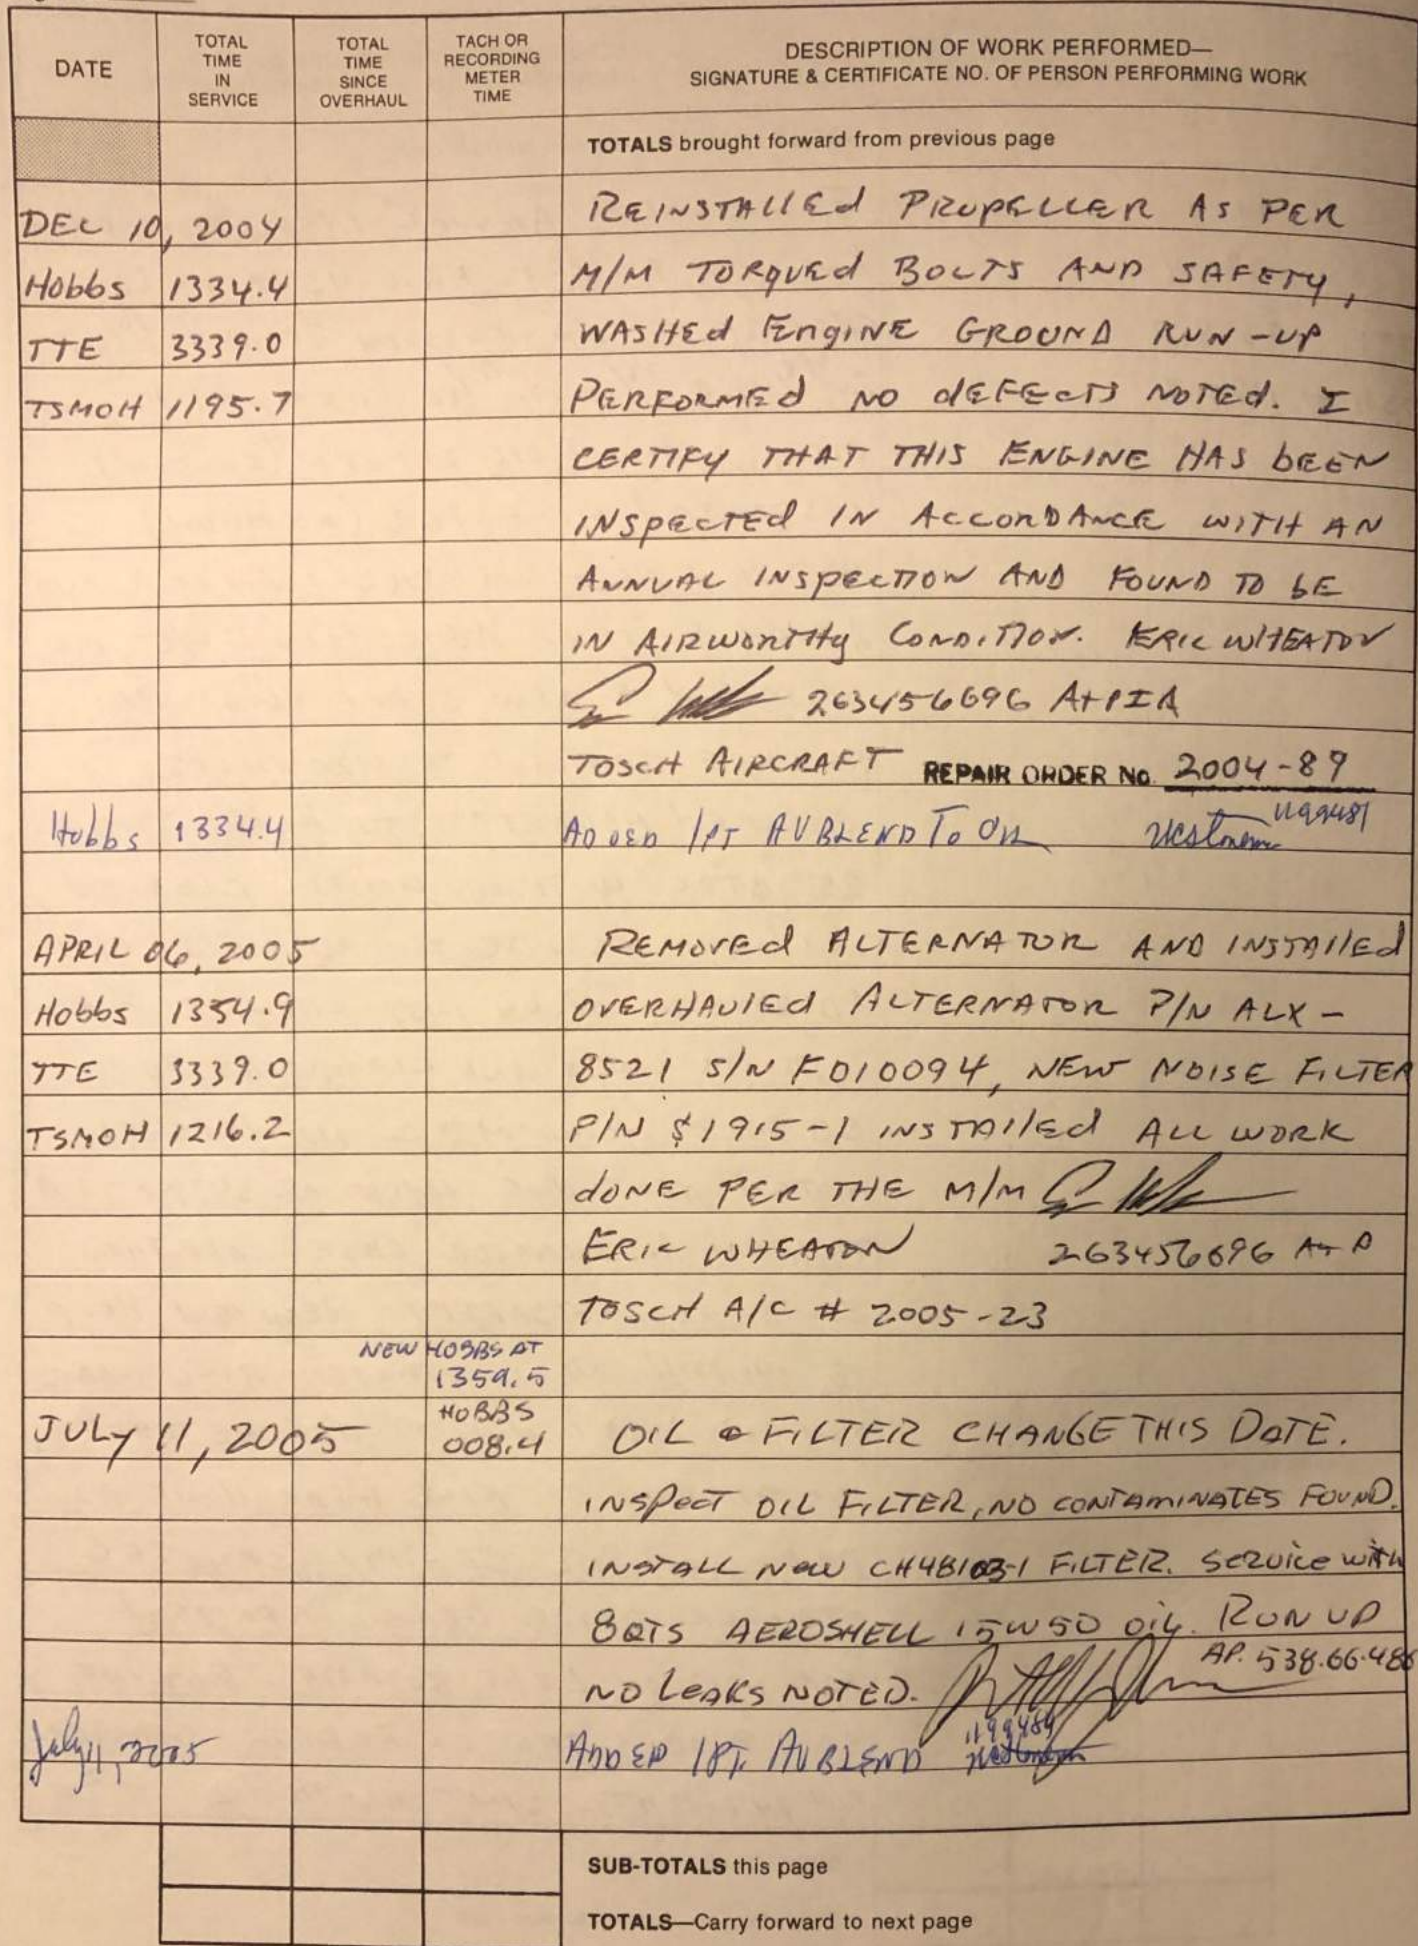 DATE
TOTAL TIME IN SERVICE
TOTAL TIME SINCE OVERHAUL
TACH OR RECORDING METER TIME
DESCRIPTION OF WORK PERFORMED—
SIGNATURE & CERTIFICATE NO. OF PERSON PERFORMING WORK
TOTALS brought forward from previous page
DEC 10, 2004 REINSTALLED PROPELLER AS PER
Hobbs 1334.4 M/M TORQUED BOLTS AND SAFETY,
TTE 3339.0 WASHED ENGINE GROUND RUN-UP
TSMOH 1195.7 PERFORMED NO DEFECTS NOTED. I
CERTIFY THAT THIS ENGINE HAS BEEN
INSPECTED IN ACCORDANCE WITH AN
ANNUAL INSPECTION AND FOUND TO BE
IN AIRWORTHY CONDITION. ERIC WHEATON
263456696 A+PIA
TOSCH AIRCRAFT REPAIR ORDER No. 2004-89
Hobbs 1334.4 ADDED 1PT AVBLEND TO OIL
APRIL 06, 2005 REMOVED ALTERNATOR AND INSTALLED
Hobbs 1354.9 OVERHAULED ALTERNATOR P/N ALX-
TTE 3339.0 8521 S/N F010094, NEW NOISE FILTER
TSMOH 1216.2 P/N S1915-1 INSTALLED ALL WORK
DONE PER THE M/M
ERIC WHEATON 263456696 A+P
TOSCH A/C # 2005-23
NEW HOBBS AT
1359.5
JULY 11, 2005 HOBBS 008.4 OIL & FILTER CHANGE THIS DATE.
INSPECT OIL FILTER, NO CONTAMINATES FOUND.
INSTALL NEW CH48103-1 FILTER. SERVICE WITH
8QTS AEROSHELL 15W50 OIL. RUN UP
NO LEAKS NOTED. AP. 538.66.486
July 11, 2005 ADDED 1PT. AVBLEND
SUB-TOTALS this page
TOTALS—Carry forward to next page